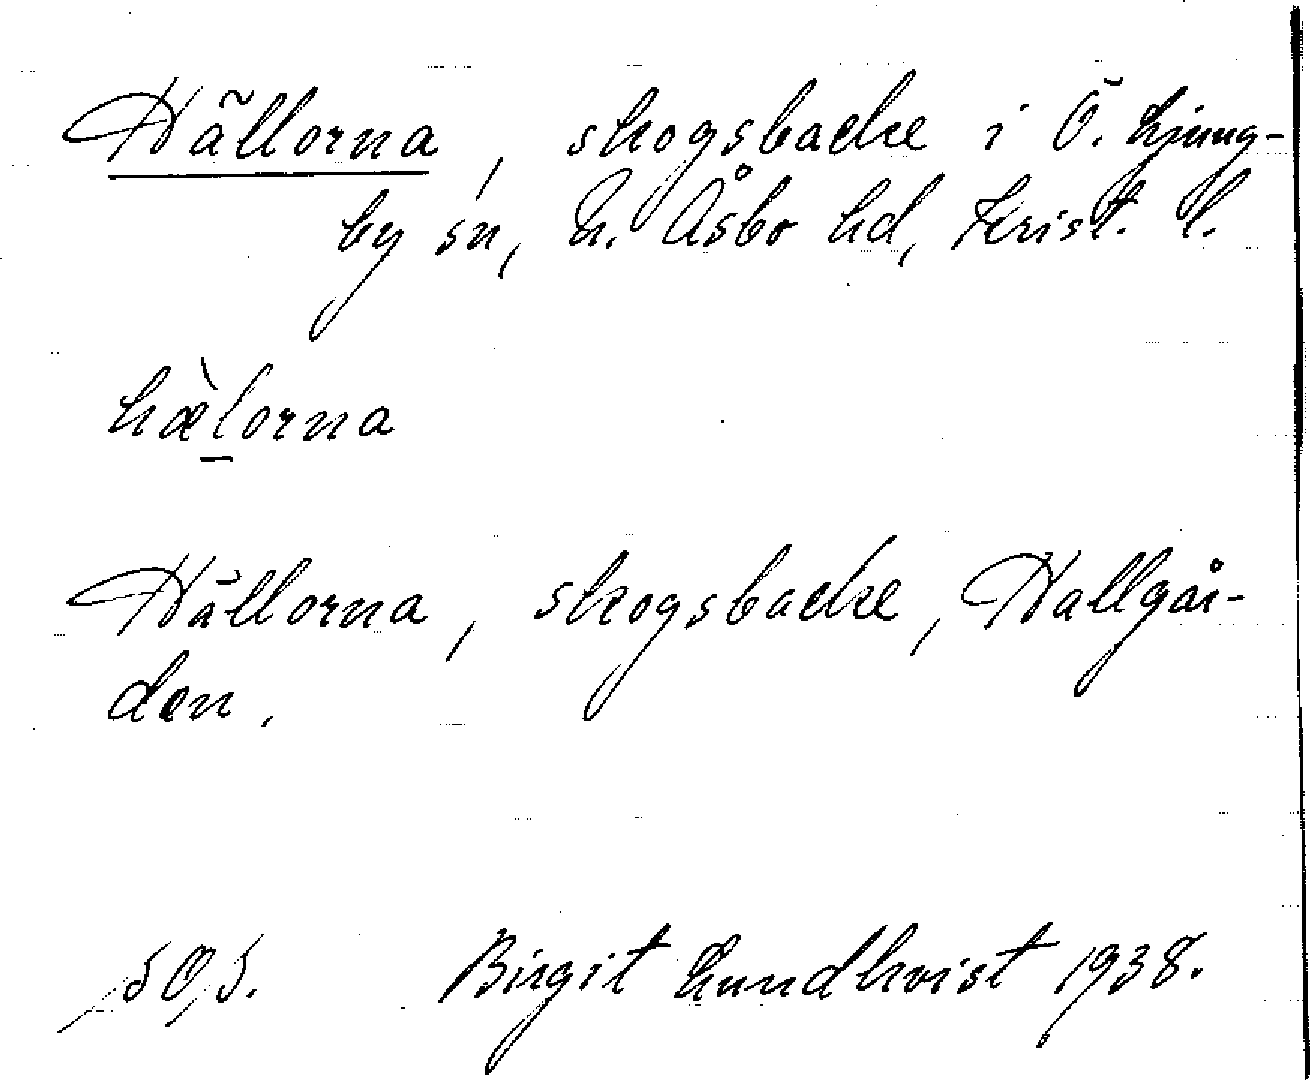 Hällorna, skogsbacke i Ö. Ljung-
by sn, N. Åsbo hd, Krist. l.
hæ̀l̠orna
Hällorna, skogsbacke, Hallgår-
den.
Birgit Lundkvist 1938.